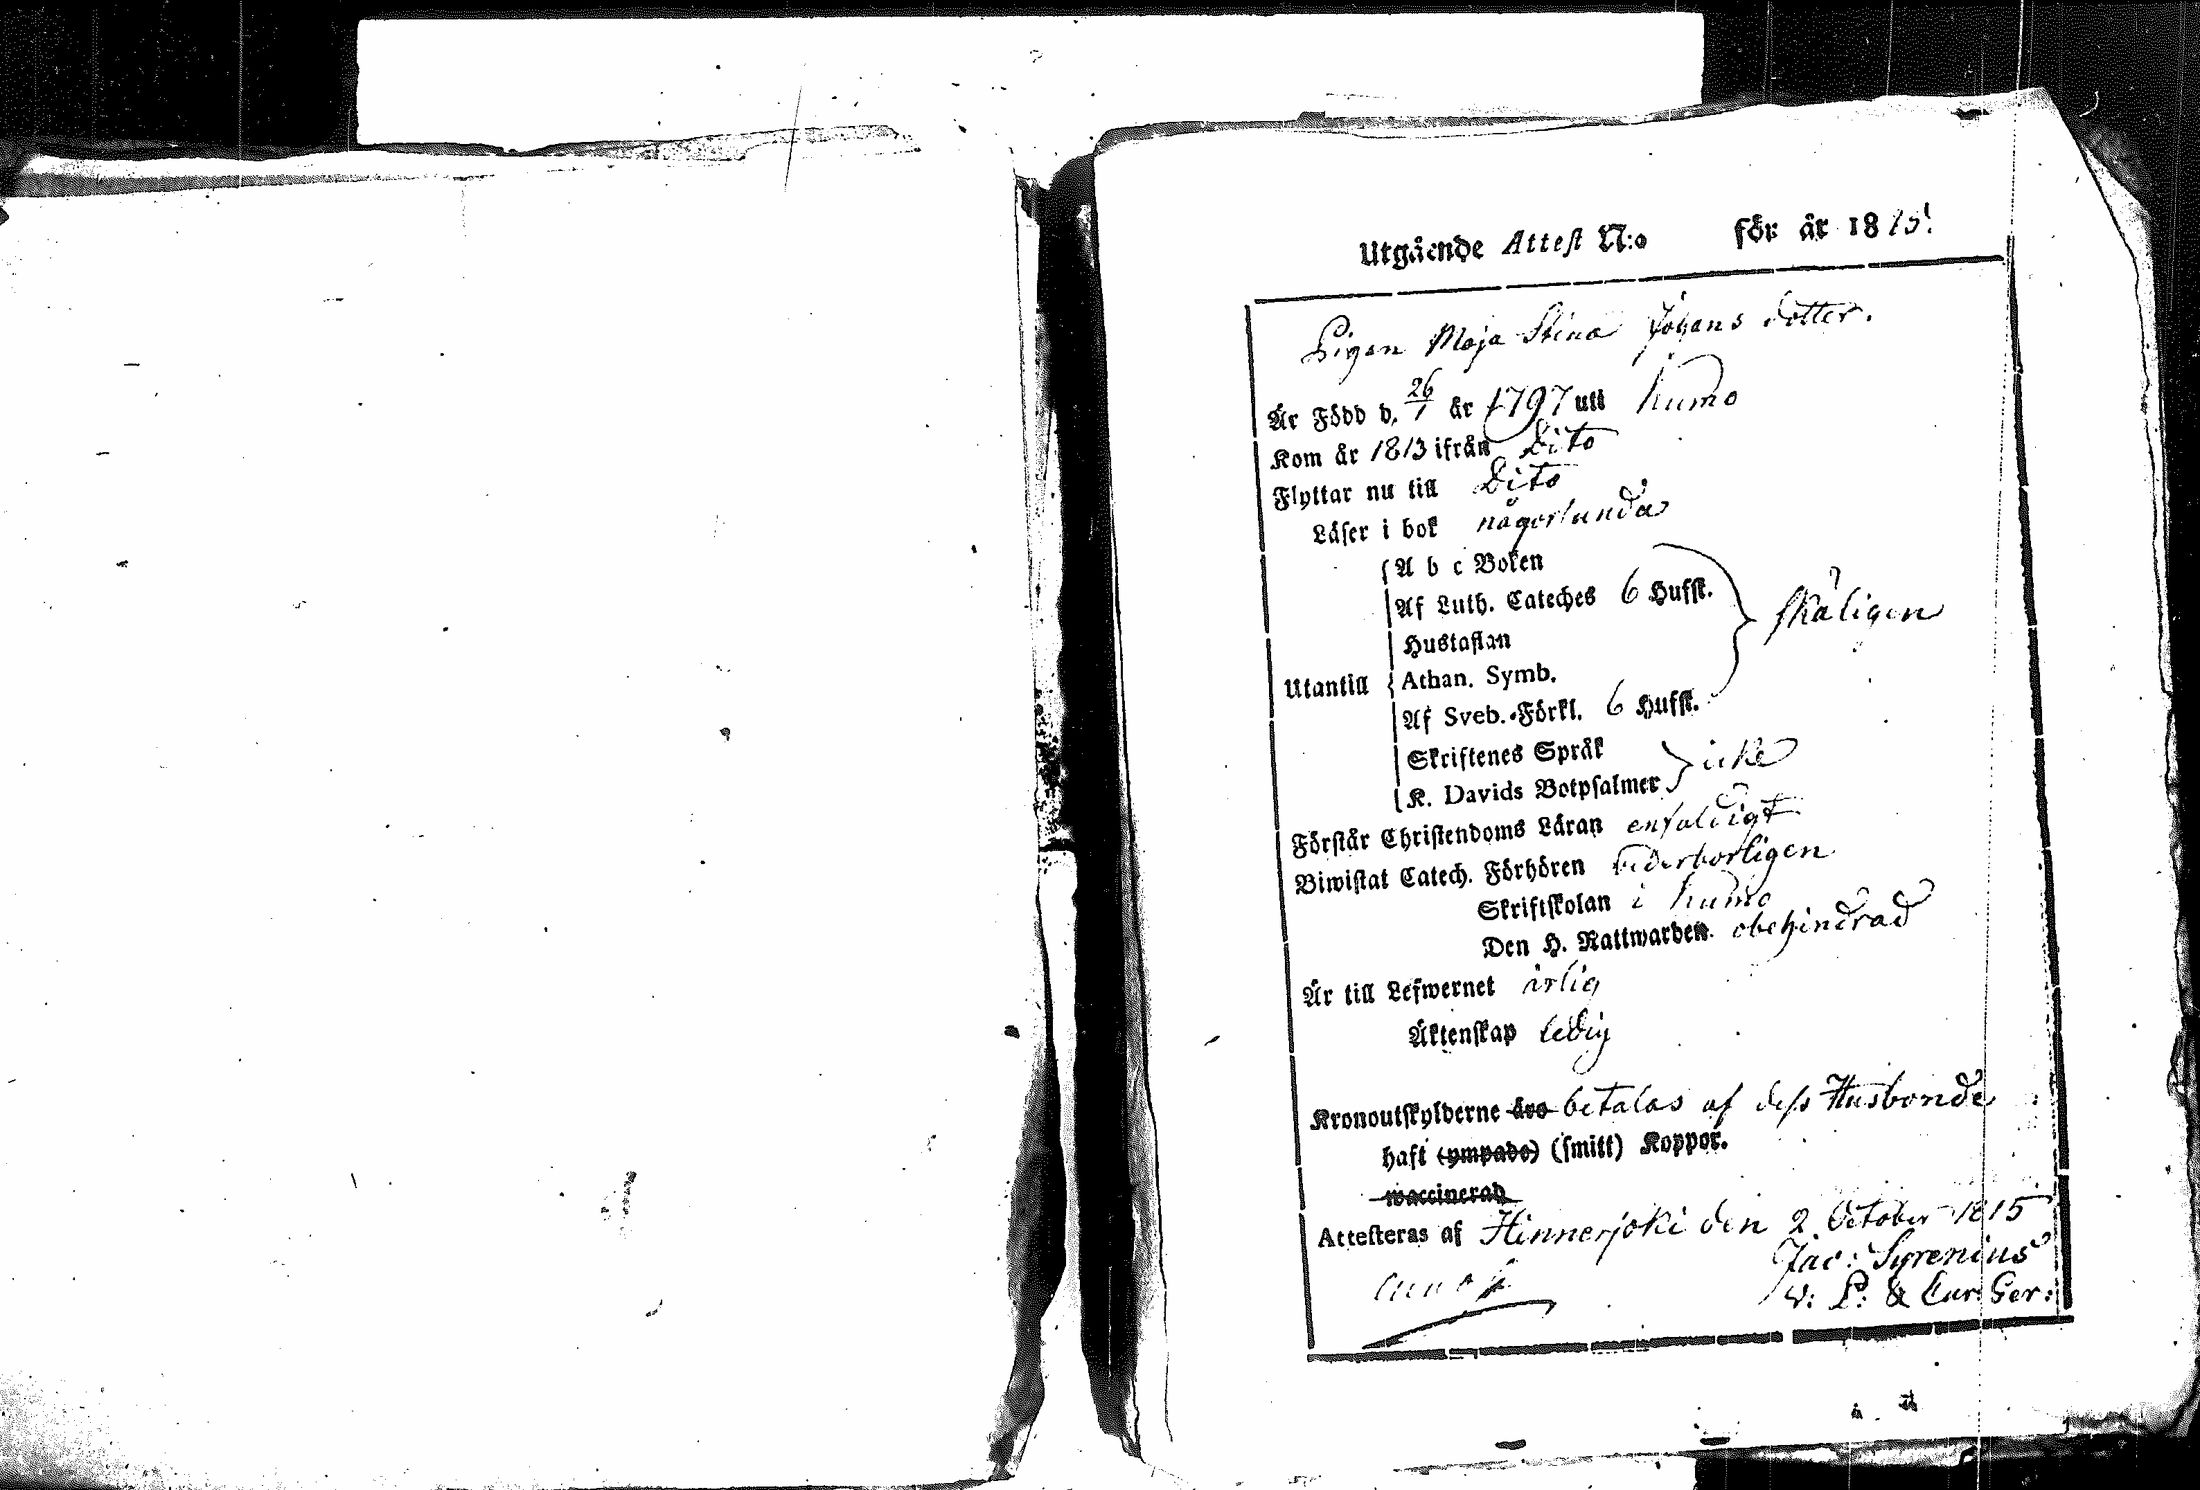 Utgående Attest N:o för år 1815.
Pigan Maja Stina Johans dotter.
Är Född d. 26/1 år 1797 uti Kumo
Kom år 1813 ifrån Dito
Flyttar nu till Dito
Läser i bok någorlunda
A b c Boken
Af Luth. Cateches 6 Hufst.
skäligen
Hustaflan
Utantill Athan. Symb.
Af Sveb. Förkl. 6 Hufst.
Skriftenes Språk
icke
K. Davids Botpsalmer
Förstår Christendoms Läran enfaldigt
Biwistat Catech. Förhören vederborligen
Skriftskolan i Kumo
Den H. Nattwarden obehindrad
Är till Lefwernet ärlig
Äktenskap ledig
Kronoutskylderne äro betalas af dess Husbonde
haft (ympade) (smitt) Koppor.
waccinerad
Attesteras af Hinnerjoki den 2 October 1815
Jac: Syrenius
v: P: & Cur: Ger: